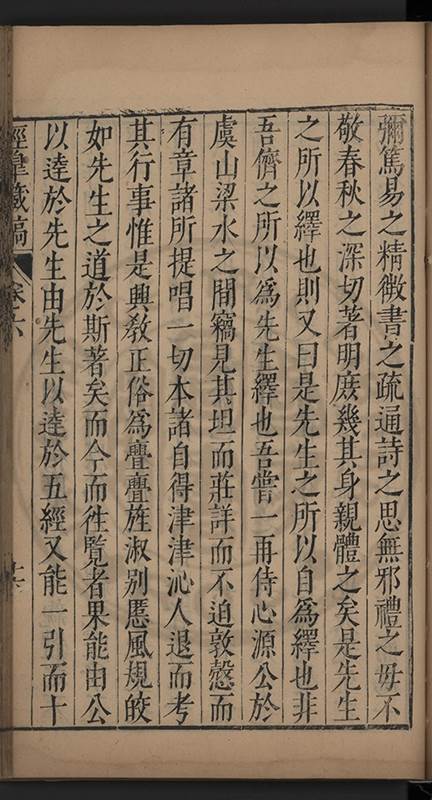 彌篤易之精微書之疏通詩之思無邪禮之毋不
敬春秋之深切著明庶幾其身親體之矣是先生
之所以繹也則又曰是先生之所以自為繹也非
吾儕之所以為先生繹也吾嘗一再侍心源公於
虞山梁水之間竊見其坦而莊詳而不迫敦愨而
有章諸所提唱一切本諸自得津津沁人退而考
其行事惟是興教正俗為亹亹旌淑別慝風規皎
如先生之道於斯著矣而今而徃覽者果能由公
以逹於先生由先生以逹於五經又能一引而十
臯藏稿 卷之六